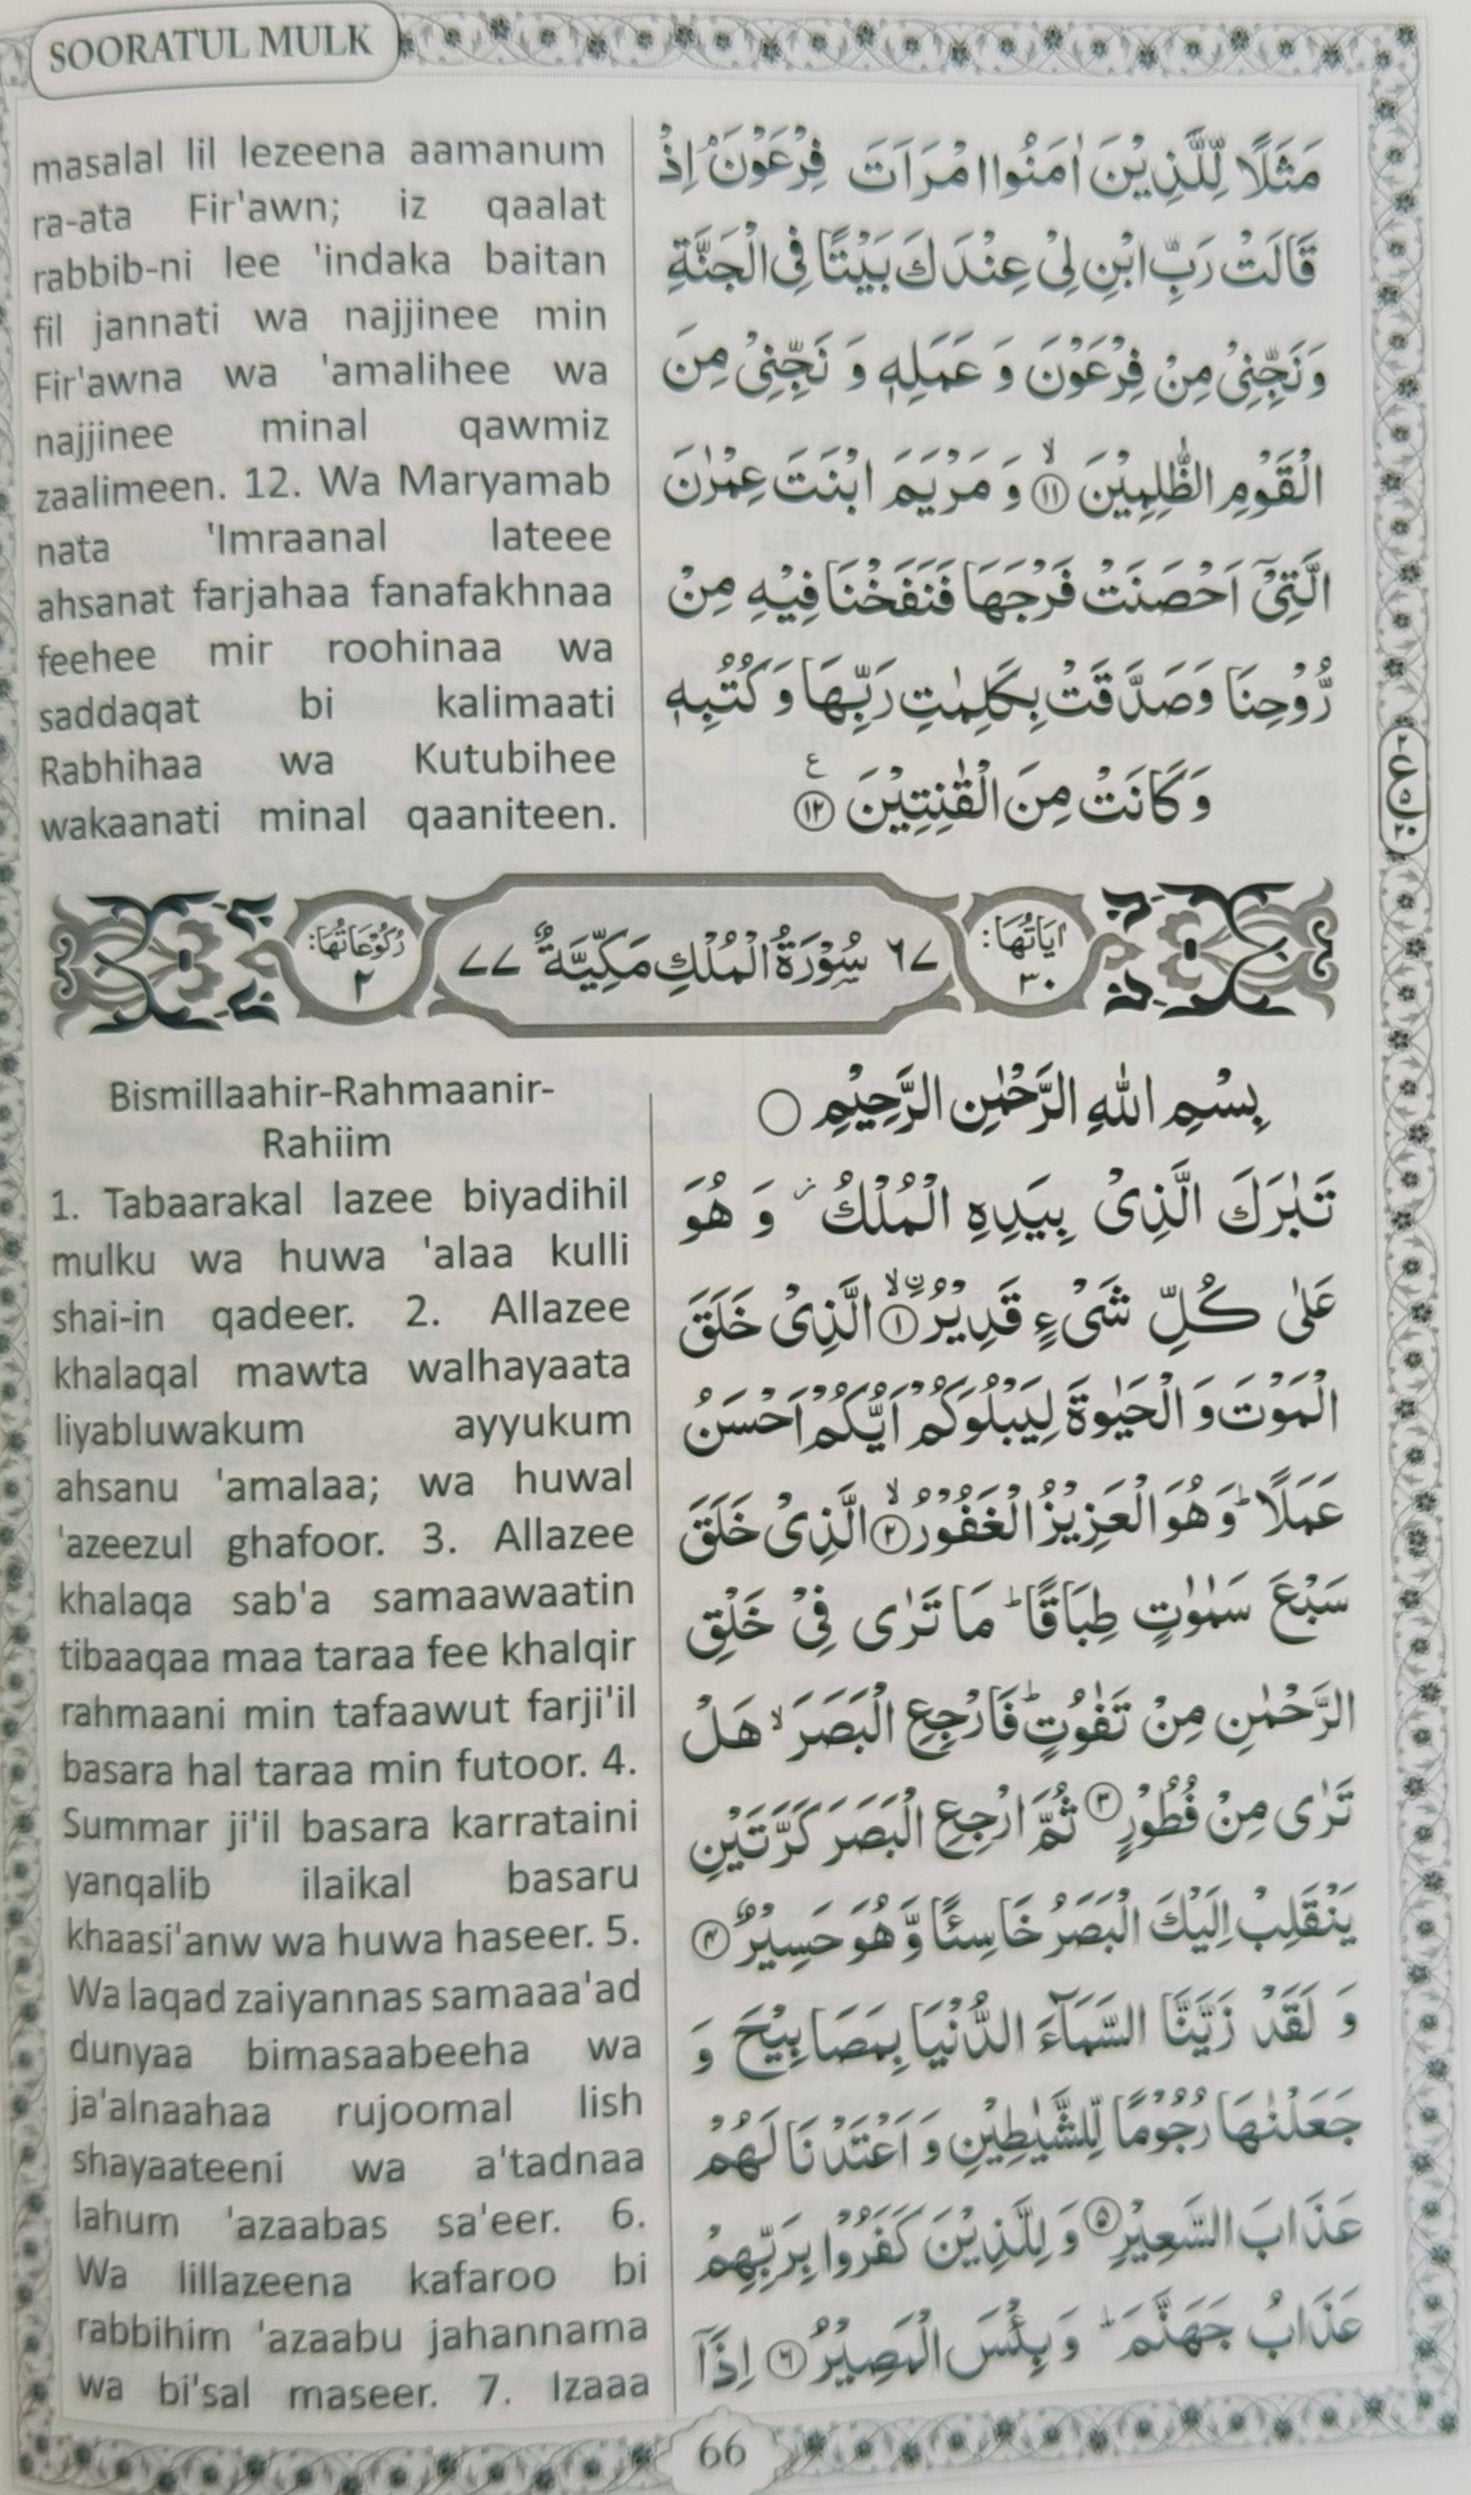 SOORATUL MULK
masalal lil lezeena aamanum
ra-ata Fir'awn; iz qaalat
rabbib-ni lee 'indaka baitan
fil jannati wa najjinee min
Fir'awna wa 'amalihee wa
najjinee minal qawmiz
zaalimeen. 12. Wa Maryamab
nata 'Imraanal lateee
ahsanat farjahaa fanafakhnaa
feehee mir roohinaa wa
saddaqat bi kalimaati
Rabhihaa wa Kutubihee
wakaanati minal qaaniteen.
مَثَلًا لِّلَّذِيْنَ اٰمَنُوا امْرَاَتَ فِرْعَوْنَ ۘ اِذْ
قَالَتْ رَبِّ ابْنِ لِیْ عِنْدَكَ بَيْتًا فِی الْجَنَّةِ
وَنَجِّنِیْ مِنْ فِرْعَوْنَ وَ عَمَلِهٖ وَ نَجِّنِیْ مِنَ
الْقَوْمِ الظّٰلِمِيْنَ ۙ﴿۱۱﴾ وَ مَرْيَمَ ابْنَتَ عِمْرٰنَ
الَّتِیْۤ اَحْصَنَتْ فَرْجَهَا فَنَفَخْنَا فِيْهِ مِنْ
رُّوْحِنَا وَصَدَّقَتْ بِكَلِمٰتِ رَبِّهَا وَ كُتُبِهٖ
وَ كَانَتْ مِنَ الْقٰنِتِيْنَ ﴿۱۲﴾ ع
اٰيَاتُهَا: ۳۰
٦٧ سُوْرَةُ الْمُلْكِ مَكِّيَّةٌ ٧٧
رُكُوْعَاتُهَا: ۲
Bismillaahir-Rahmaanir-
Rahiim
1. Tabaarakal lazee biyadihil
mulku wa huwa 'alaa kulli
shai-in qadeer. 2. Allazee
khalaqal mawta walhayaata
liyabluwakum ayyukum
ahsanu 'amalaa; wa huwal
'azeezul ghafoor. 3. Allazee
khalaqa sab'a samaawaatin
tibaaqaa maa taraa fee khalqir
rahmaani min tafaawut farji'il
basara hal taraa min futoor. 4.
Summar ji'il basara karrataini
yanqalib ilaikal basaru
khaasi'anw wa huwa haseer. 5.
Wa laqad zaiyannas samaaa'ad
dunyaa bimasaabeeha wa
ja'alnaahaa rujoomal lish
shayaateeni wa a'tadnaa
lahum 'azaabas sa'eer. 6.
Wa lillazeena kafaroo bi
rabbihim 'azaabu jahannama
wa bi'sal maseer. 7. Izaaa
بِسْمِ اللّٰهِ الرَّحْمٰنِ الرَّحِيْمِ
تَبٰرَكَ الَّذِیْ بِيَدِهِ الْمُلْكُ ؗ وَ هُوَ
عَلٰی كُلِّ شَیْءٍ قَدِيْرُ ۙ﴿۱﴾ الَّذِیْ خَلَقَ
الْمَوْتَ وَ الْحَيٰوةَ لِيَبْلُوَكُمْ اَيُّكُمْ اَحْسَنُ
عَمَلًا ؕ وَ هُوَ الْعَزِيْزُ الْغَفُوْرُ ۙ﴿۲﴾ الَّذِیْ خَلَقَ
سَبْعَ سَمٰوٰتٍ طِبَاقًا ؕ مَا تَرٰی فِیْ خَلْقِ
الرَّحْمٰنِ مِنْ تَفٰوُتٍ ؕ فَارْجِعِ الْبَصَرَ ۙ هَلْ
تَرٰی مِنْ فُطُوْرٍ ﴿۳﴾ ثُمَّ ارْجِعِ الْبَصَرَ كَرَّتَيْنِ
يَنْقَلِبْ اِلَيْكَ الْبَصَرُ خَاسِئًا وَّ هُوَ حَسِيْرٌ ﴿۴﴾
وَ لَقَدْ زَيَّنَّا السَّمَآءَ الدُّنْيَا بِمَصَابِيْحَ وَ
جَعَلْنٰهَا رُجُوْمًا لِّلشَّيٰطِيْنِ وَ اَعْتَدْنَا لَهُمْ
عَذَابَ السَّعِيْرِ ﴿۵﴾ وَ لِلَّذِيْنَ كَفَرُوْا بِرَبِّهِمْ
عَذَابُ جَهَنَّمَ ؕ وَ بِئْسَ الْمَصِيْرُ ﴿۶﴾ اِذَاۤ
66